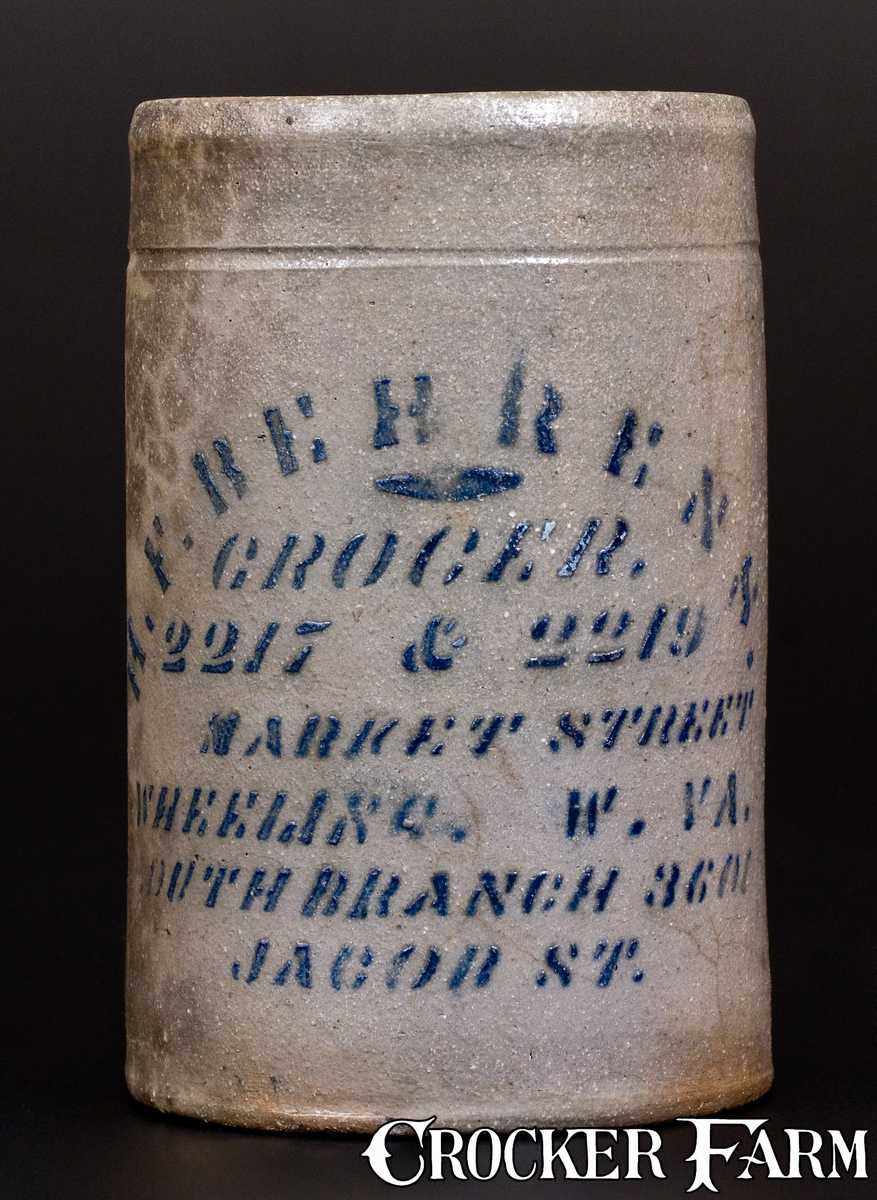 H. F. BEHRENS.
GROCER.
2217 & 2219
MARKET STREET
WHEELING. W. VA.
SOUTH BRANCH 3601
JACOB ST.
CROCKER FARM